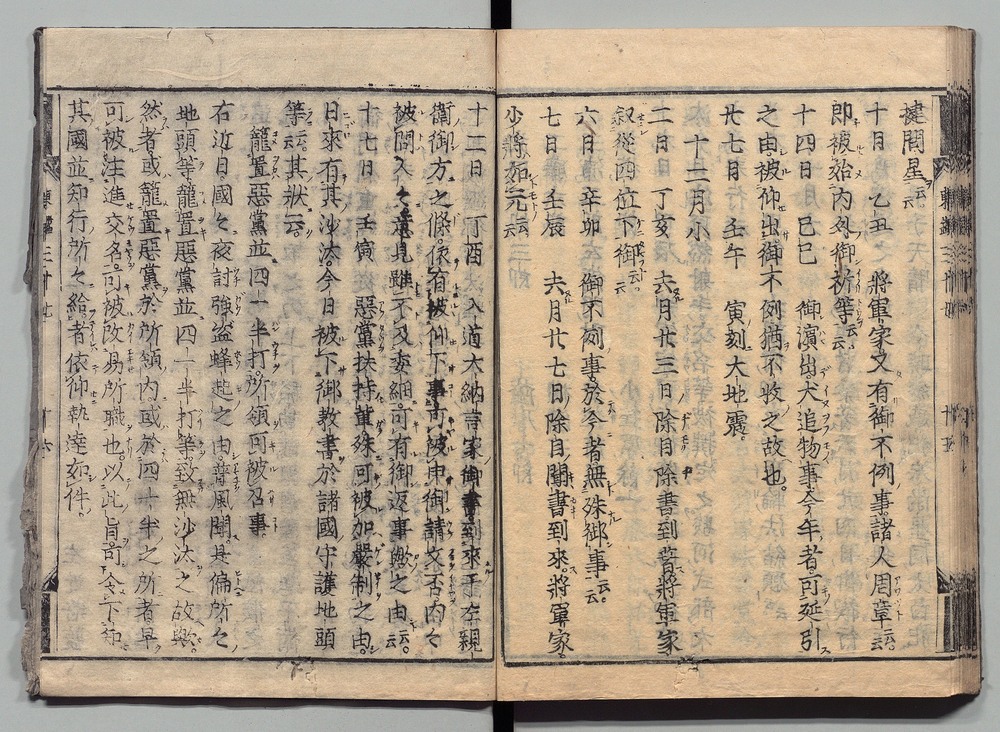 揵閇星ヲ云云
十月 乙丑 將軍家又有御不例事諸人周章云云
即被始内外御祈等云云
十四日 己巳 御濱出犬追物事今年者可延引
之由被仰出御不例猶不收之故也
廿七日 壬午 寅刻大地震
十二月小
二日 丁亥 六月廿三日除目除書到著將軍家
叙從四位下御云云
六日 辛卯 御不例事於今者無殊御事云云
七日 壬辰 六月廿七日除目聞書到來將軍家
少將如元云云
十二日 丁酉 入道大納言家御書到來于左親
衞御方之條依有被仰下事可被申御請文否内々
被問人々意見雖不及委細可有御返事歟之由云云
十七日 壬寅 惡黨扶持輩殊可被加嚴制之由
日來有其沙汰今日被下御教書於諸國守護地頭
等云云其狀云
籠置惡黨並四一半打所領可被召事
右近日國々夜討強盜蜂起之由普風聞是偏所々
地頭等籠置惡黨並四一半打等致無沙汰之故歟
然者或籠置惡黨於所領内或於四一半之所者早
可被注進交名可被改易所職也以此旨可令下知
其國並知行所々給者依仰執達如件